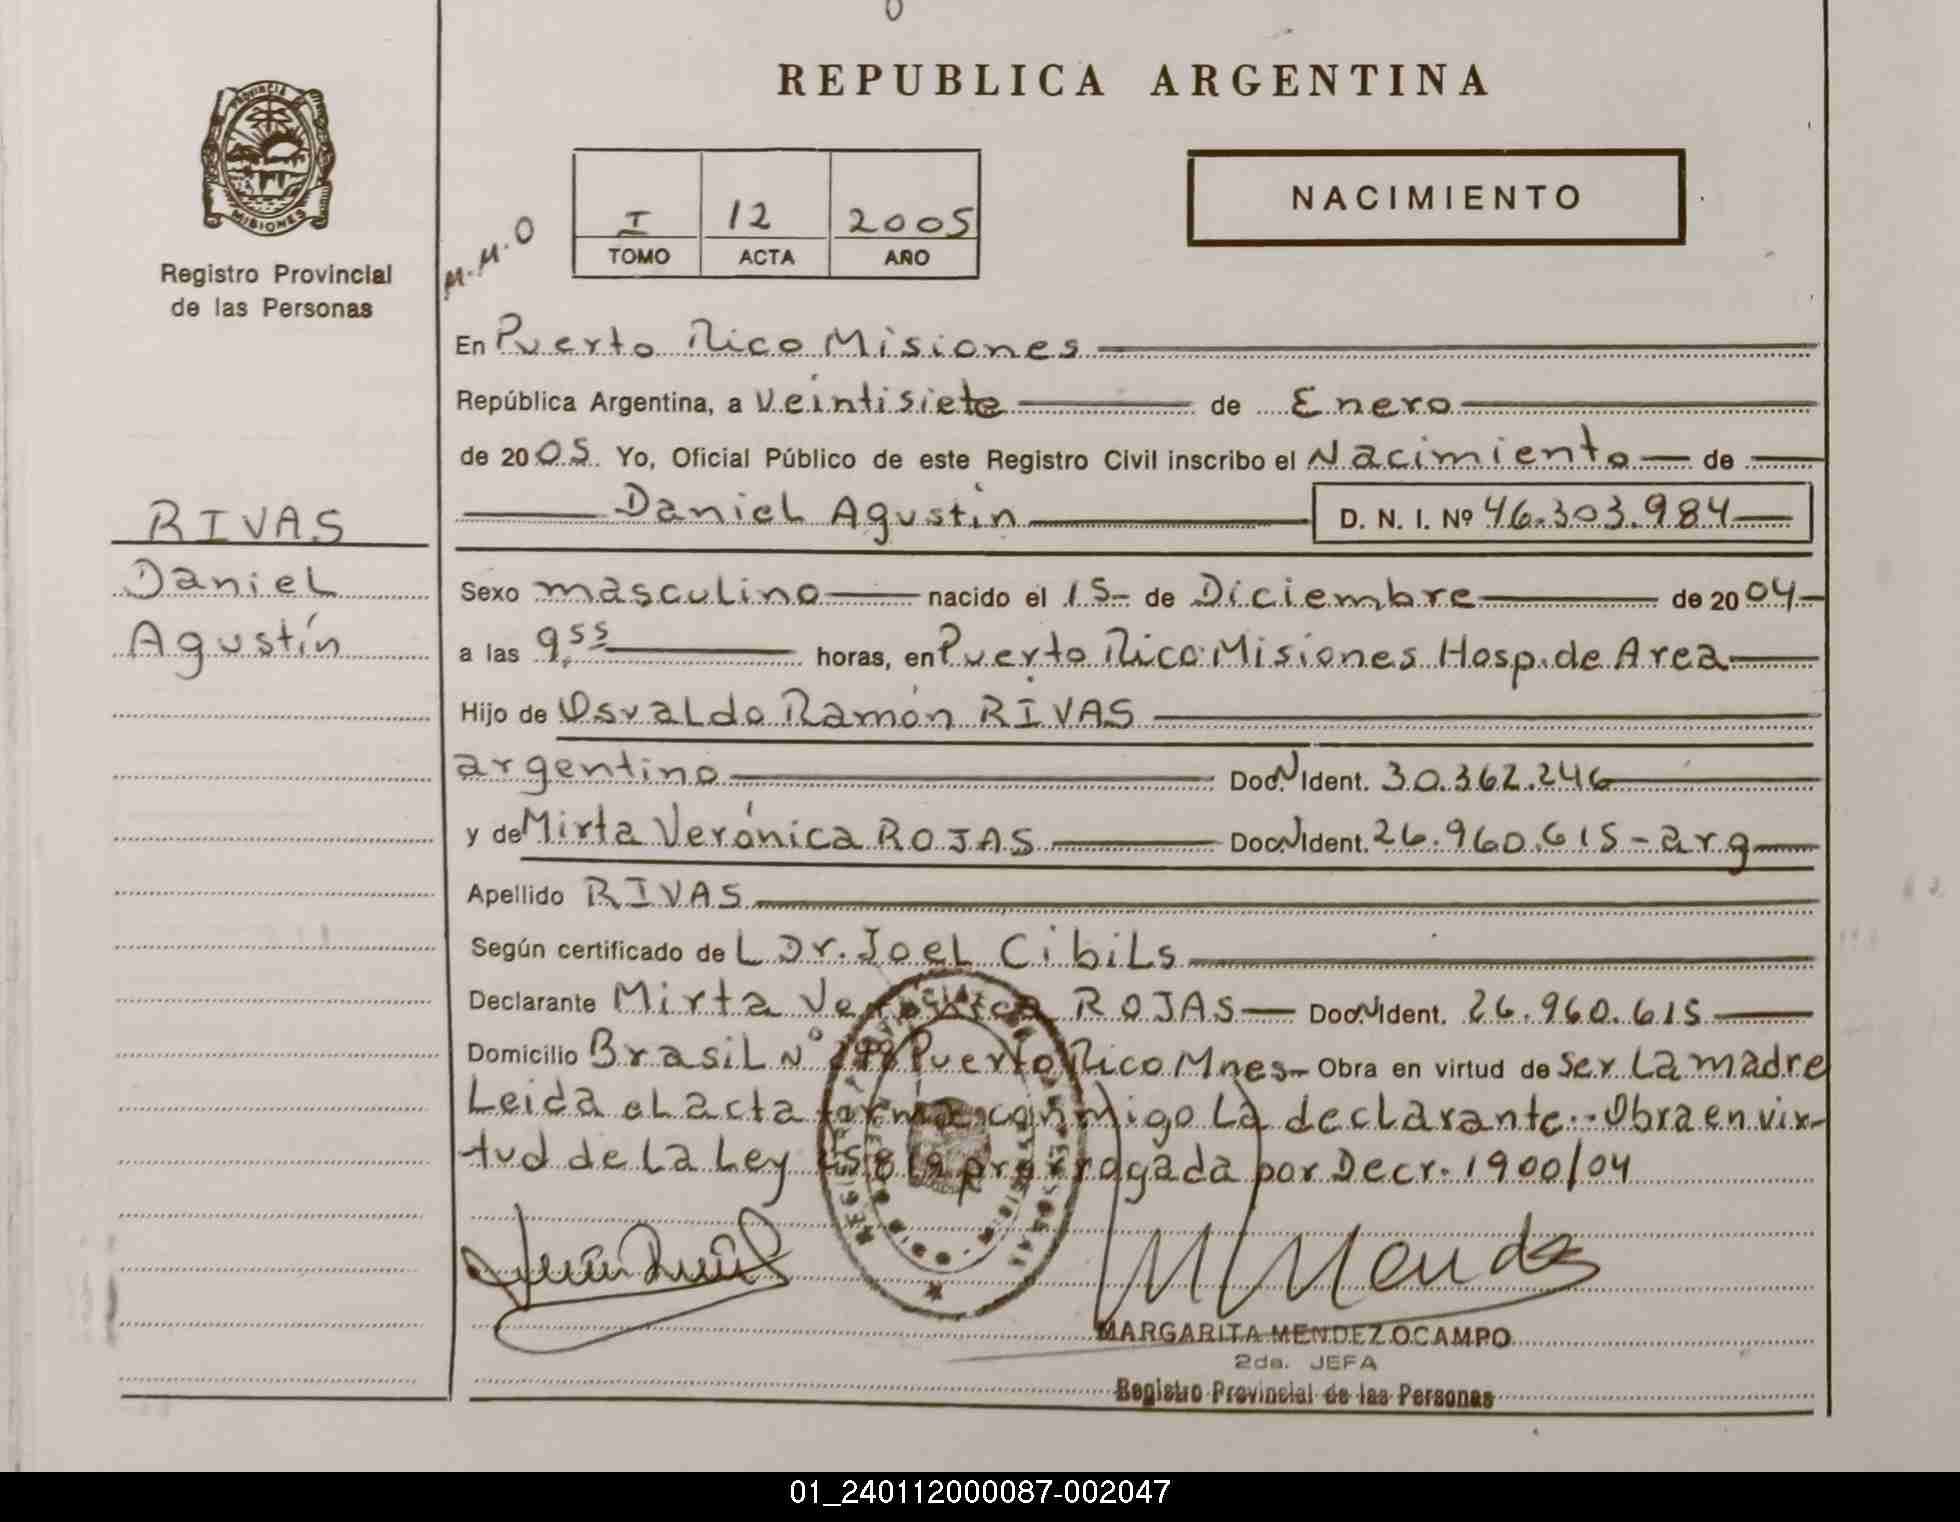 REPUBLICA ARGENTINA
PROVINCIA
MISIONES
Registro Provincial
de las Personas
M.M.O
I 12 2005
TOMO ACTA AÑO
NACIMIENTO
En Puerto Rico Misiones
República Argentina, a Veintisiete de Enero
de 2005. Yo, Oficial Público de este Registro Civil inscribo el Nacimiento de
Daniel Agustín D. N. I. Nº 46.303.984
RIVAS
Daniel
Agustín
Sexo masculino nacido el 15- de Diciembre de 2004
a las 9,55 horas, en Puerto Rico Misiones Hosp. de Area
Hijo de Osvaldo Ramón RIVAS
argentino Doc. N Ident. 30.362.246
y de Mirta Verónica ROJAS Doc. N Ident. 26.960.615 - arg
Apellido RIVAS
Según certificado de L Dr. Joel Cibils
Declarante Mirta Verónica ROJAS Doc. N Ident. 26.960.615
Domicilio Brasil N° Puerto Rico Mnes- Obra en virtud de ser la madre
Leida el acta firma conmigo la declarante.- Obra en vir-
tud de la Ley prorrogada por Decr. 1900/04
MARGARITA MENDEZ OCAMPO
2da. JEFA
Registro Provincial de las Personas
01_240112000087-002047